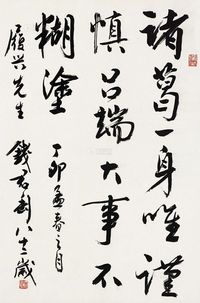 诸葛一身唯谨
慎吕端大事不
糊塗
履兴先生
丁卯孟春之月
钱君匋八十二岁